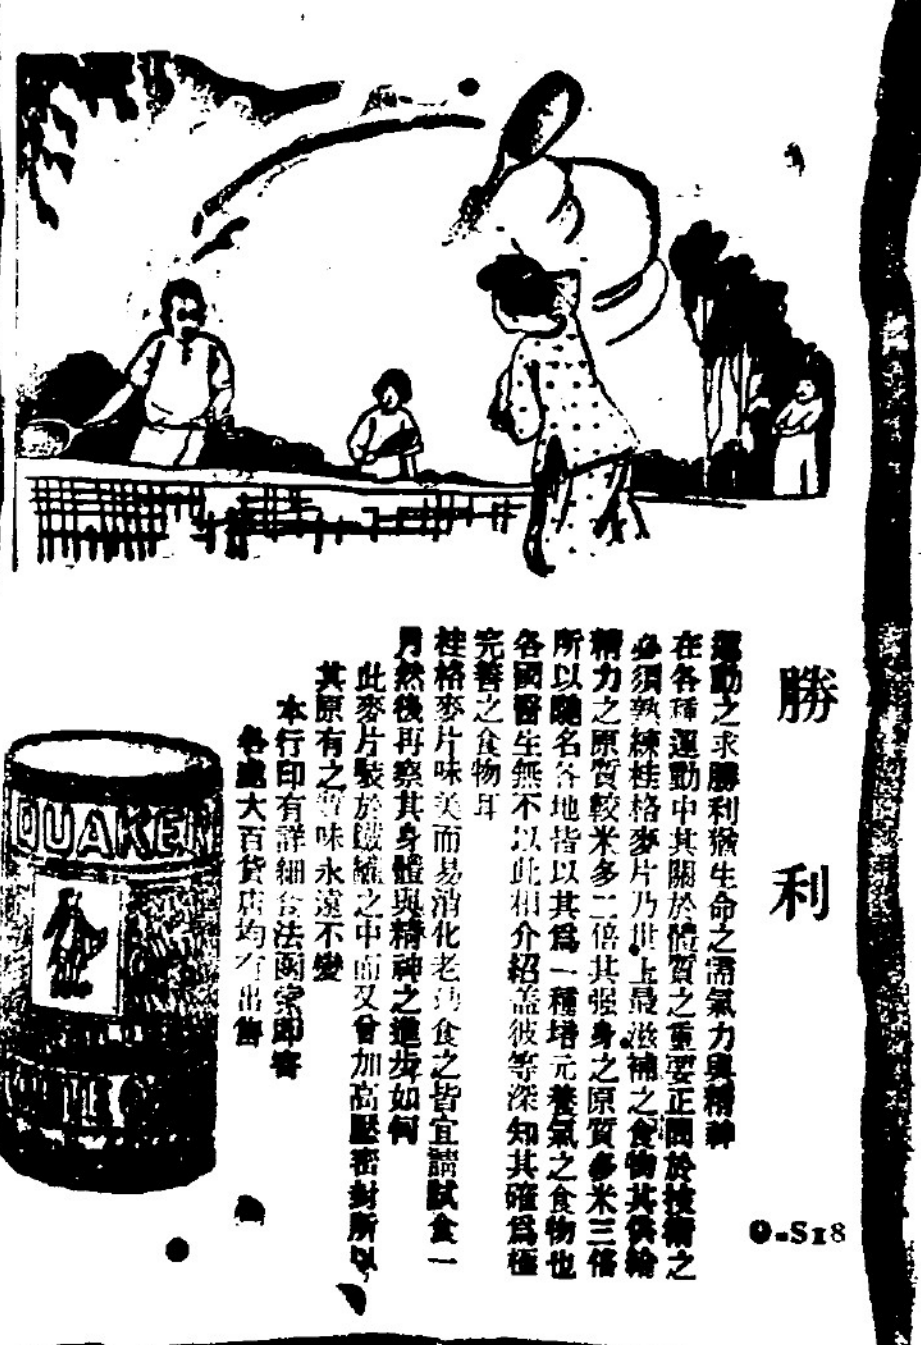 勝利
運動之求勝利猶生命之需氣力與精神
在各種運動中其關於體質之重要正同於技術之
必須熟練桂格麥片乃世上最滋補之食物其供給
精力之原質較米多二倍其强身之原質多米三倍
所以馳名各地皆以其爲一種培元養氣之食物也
各國醫生無不以此相介紹盖彼等深知其確爲極
完善之食物耳
桂格麥片味美而易消化老幼食之皆宜請試食一
月然後再察其身體與精神之進步如何
此麥片裝於鐵罐之中而又曾加高壓密封所以
其原有之味永遠不變
本行印有詳細食法函索即寄
各處大百貨店均有出售
O-S18
QUAKER